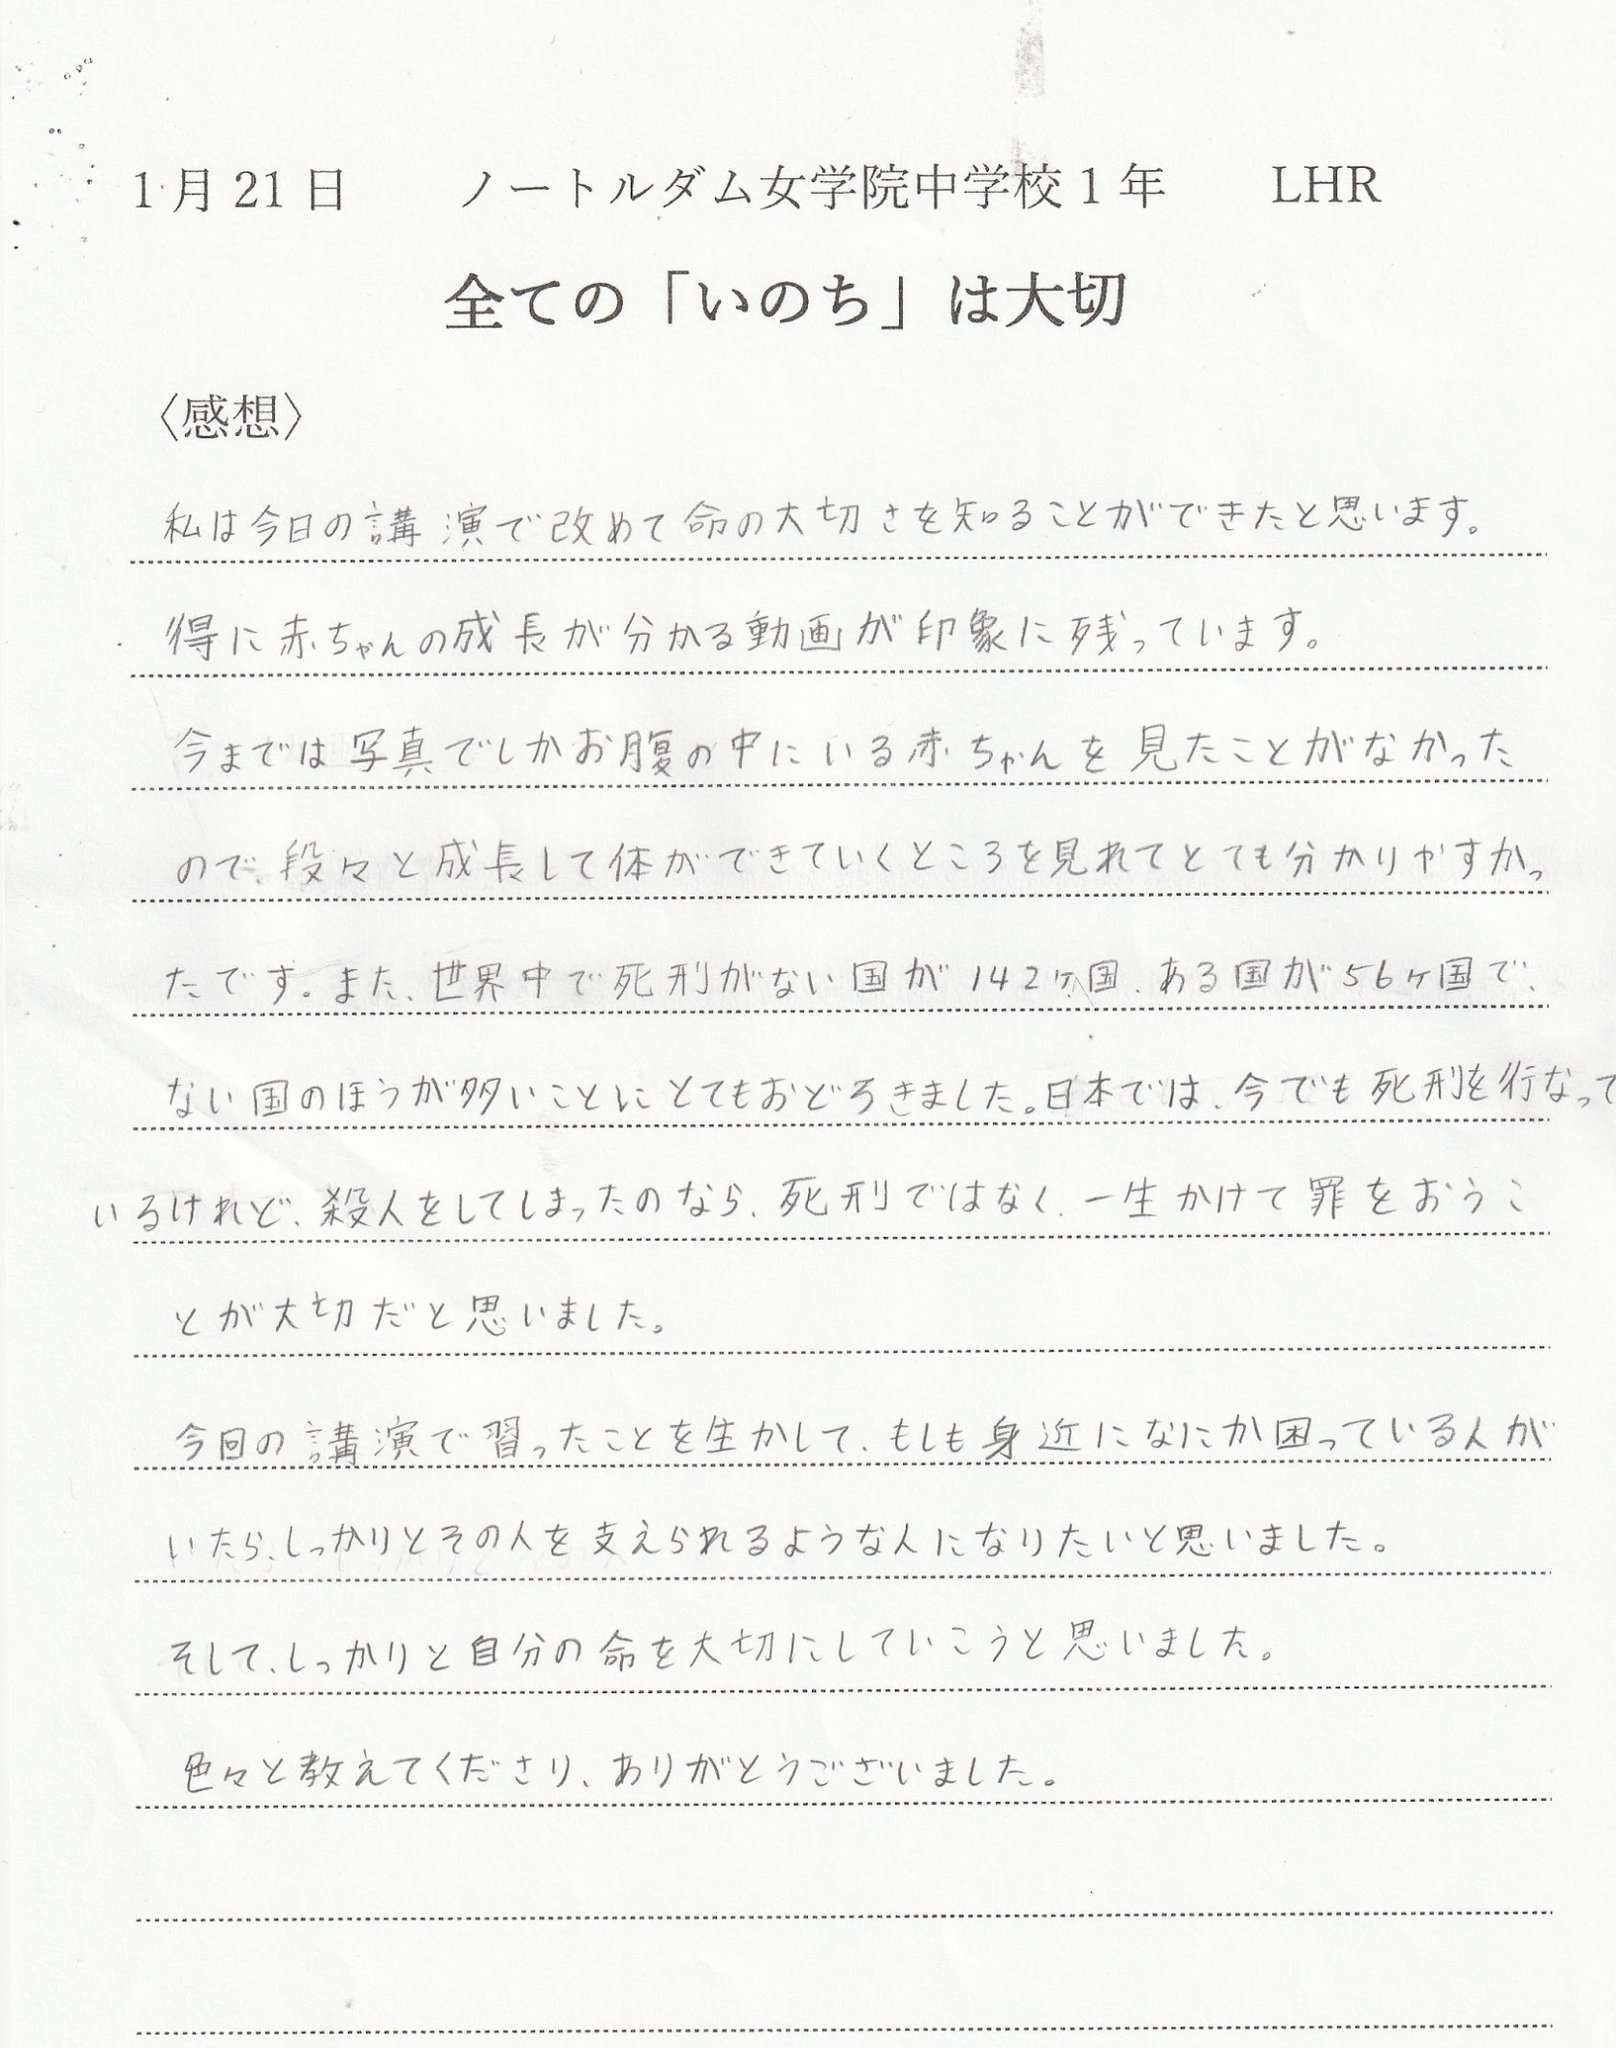 1月21日 ノートルダム女学院中学校1年 LHR
全ての「いのち」は大切
〈感想〉
私は今日の講演で改めて命の大切さを知ることができたと思います。
得に赤ちゃんの成長が分かる動画が印象に残っています。
今までは写真でしかお腹の中にいる赤ちゃんを見たことがなかった
ので、段々と成長して体ができていくところを見れてとても分かりやすかっ
たです。また、世界中で死刑がない国が142ヶ国、ある国が56ヶ国で、
ない国のほうが多いことにとてもおどろきました。日本では、今でも死刑を行なって
いるけれど、殺人をしてしまったのなら、死刑ではなく、一生かけて罪をおうこ
とが大切だと思いました。
今回の講演で習ったことを生かして、もしも身近になにか困っている人が
いたら、しっかりとその人を支えられるような人になりたいと思いました。
そして、しっかりと自分の命を大切にしていこうと思いました。
色々と教えてくださり、ありがとうございました。